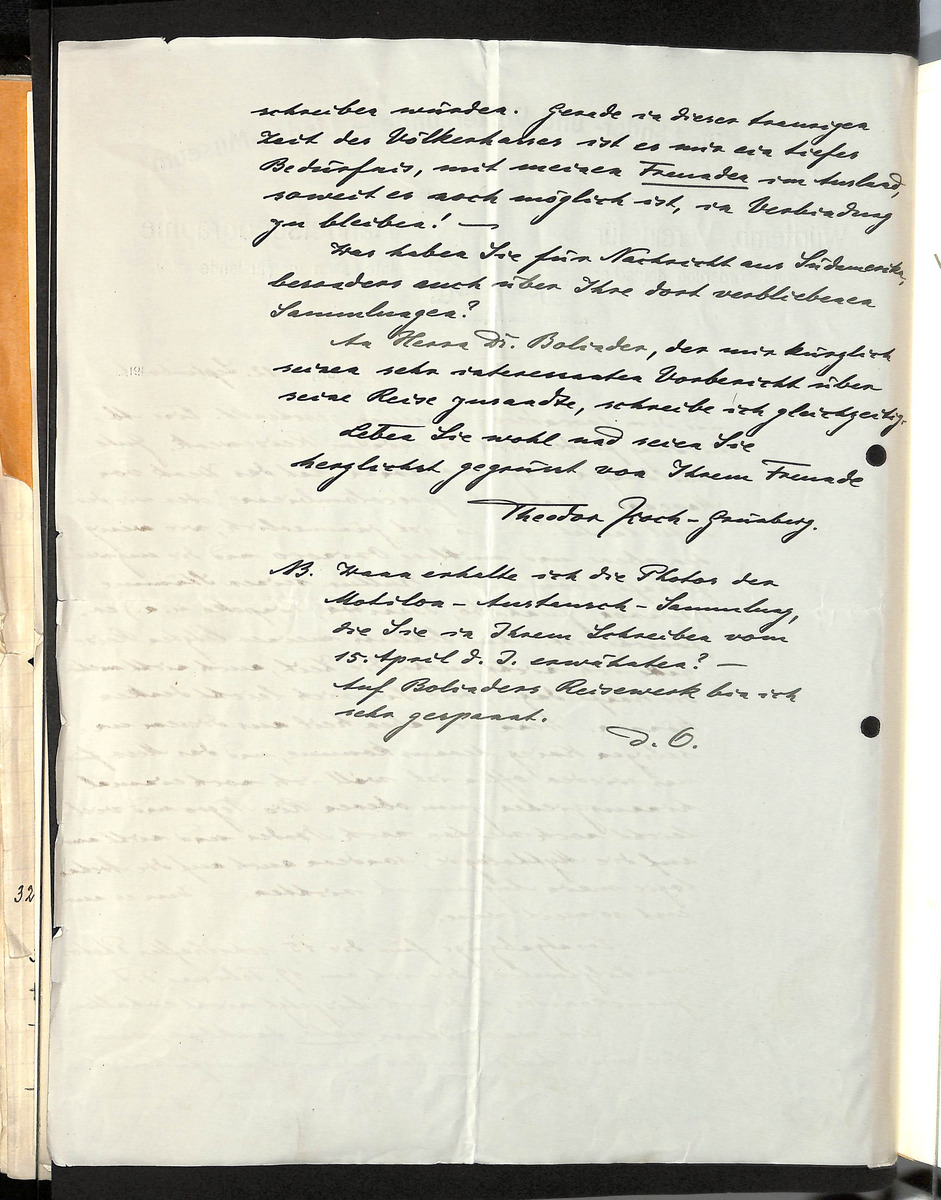 schreiben würden. Gerade in dieser traurigen
Zeit des Völkerhasses ist es mir ein tiefes
Bedürfnis, mit meinen Freunden im Ausland,
soweit es noch möglich ist, in Verbindung
zu bleiben! —
Was haben Sie für Nachricht aus Südamerika,
besonders auch über Ihre dort verbliebenen
Sammlungen?
An Herrn Dr. Bolinder, der mir kürzlich
seinen sehr interessanten Vorbericht über
seine Reise zusandte, schreibe ich gleichzeitig.
Leben Sie wohl und seien Sie
herzlichst gegrüsst von Ihrem Freunde
Theodor Koch-Grünberg.
NB. Wann erhalte ich die Photos der
Motilon-Austausch-Sammlung,
die Sie in Ihrem Schreiben vom
15. April d. J. erwähnten? —
Auf Bolinders Reisewerk bin ich
sehr gespannt.
D. O.
32